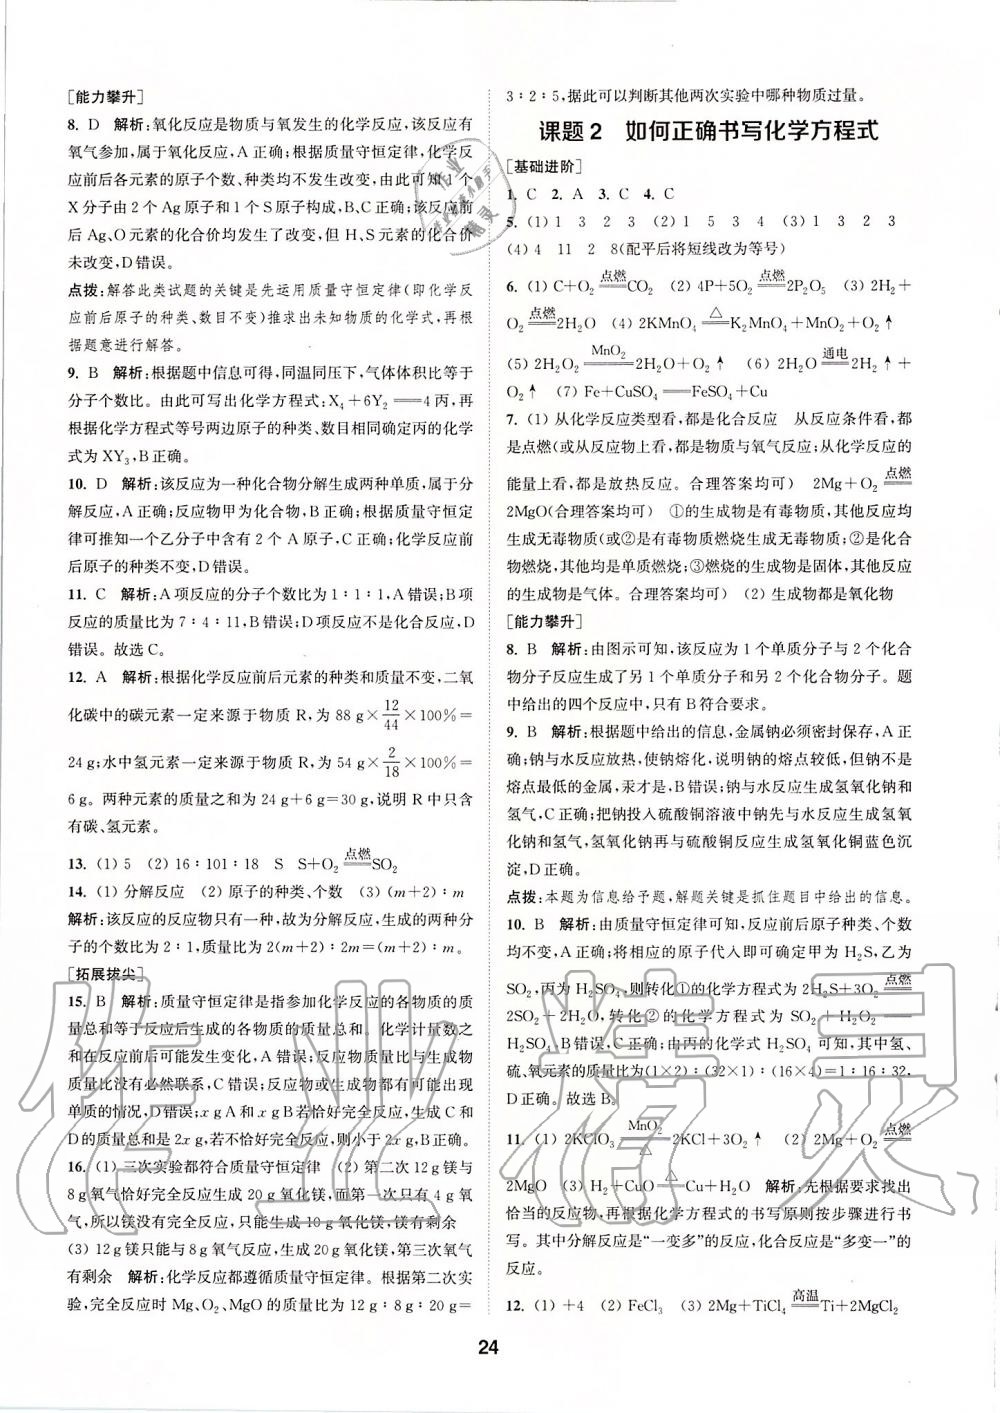 [能力攀升]
8. D 解析:氧化反应是物质与氧发生的化学反应,该反应有
氧气参加,属于氧化反应,A正确;根据质量守恒定律,化学反
应前后各元素的原子个数、种类均不发生改变,由此可知1个
X分子由2个Ag原子和1个S原子构成,B、C正确;该反应前
后Ag、O元素的化合价均发生了改变,但H、S元素的化合价
未改变,D错误。
点拨:解答此类试题的关键是先运用质量守恒定律(即化学反
应前后原子的种类、数目不变)推求出未知物质的化学式,再根
据题意进行解答。
9. B 解析:根据题中信息可得,同温同压下,气体体积比等于
分子个数比。由此可写出化学方程式:X₄+6Y₂══4丙,再
根据化学方程式等号两边原子的种类、数目相同确定丙的化学
式为XY₃,B正确。
10. D 解析:该反应为一种化合物分解生成两种单质,属于分
解反应,A正确;反应物甲为化合物,B正确;根据质量守恒定
律可推知一个乙分子中含有2个A原子,C正确;化学反应前
后原子的种类不变,D错误。
11. C 解析:A项反应的分子个数比为1∶1∶1,A错误;B项
反应的质量比为7∶4∶11,B错误;D项反应不是化合反应,D
错误。故选C。
12. A 解析:根据化学反应前后元素的种类和质量不变,二氧
化碳中的碳元素一定来源于物质R,为88 g×12/44×100%=
24 g;水中氢元素一定来源于物质R,为54 g×2/18×100%=
6 g。两种元素的质量之和为24 g+6 g=30 g,说明R中只含
有碳、氢元素。
13. (1) 5 (2) 16∶101∶18 S S+O₂═点燃═SO₂
14. (1) 分解反应 (2) 原子的种类、个数 (3) (m+2)∶m
解析:该反应的反应物只有一种,故为分解反应,生成的两种分
子的个数比为2∶1,质量比为2(m+2)∶2m=(m+2)∶m。
[拓展拔尖]
15. B 解析:质量守恒定律是指参加化学反应的各物质的质
量总和等于反应后生成的各物质的质量总和。化学计量数之
和在反应前后可能发生变化,A错误;反应物质量比与生成物
质量比没有必然联系,C错误;反应物或生成物都有可能出现
单质的情况,D错误;x g A和x g B若恰好完全反应,生成C和
D的总质量是2x g,若不恰好完全反应,则小于2x g,B正确。
16. (1) 三次实验都符合质量守恒定律 (2) 第二次12 g镁与
8 g氧气恰好完全反应生成20 g氧化镁,而第一次只有4 g氧
气,所以镁没有完全反应,只能生成10 g氧化镁,镁有剩余
(3) 12 g镁只能与8 g氧气反应,生成20 g氧化镁,第三次氧气
有剩余 解析:化学反应都遵循质量守恒定律。根据第二次实
验,完全反应时Mg、O₂、MgO的质量比为12 g∶8 g∶20 g=
3∶2∶5,据此可以判断其他两次实验中哪种物质过量。
课题2 如何正确书写化学方程式
[基础进阶]
1. C 2. A 3. C 4. C
5. (1) 1 3 2 3 (2) 1 5 3 4 (3) 1 3 2 3
(4) 4 11 2 8(配平后将短线改为等号)
6. (1) C+O₂═点燃═CO₂ (2) 4P+5O₂═点燃═2P₂O₅ (3) 2H₂+
O₂═点燃═2H₂O (4) 2KMnO₄═△═K₂MnO₄+MnO₂+O₂↑
(5) 2H₂O₂═MnO₂═2H₂O+O₂↑ (6) 2H₂O═通电═2H₂↑+
O₂↑ (7) Fe+CuSO₄══FeSO₄+Cu
7. (1) 从化学反应类型看,都是化合反应 从反应条件看,都
是点燃(或从反应物上看,都是物质与氧气反应;从化学反应的
能量上看,都是放热反应。合理答案均可) 2Mg+O₂═点燃═
2MgO(合理答案均可) ①的生成物是有毒物质,其他反应均
生成无毒物质(或②是有毒物质燃烧生成无毒物质;②是化合
物燃烧,其他均是单质燃烧;③燃烧的生成物是固体,其他反应
的生成物是气体。合理答案均可) (2) 生成物都是氧化物
[能力攀升]
8. B 解析:由图示可知,该反应为1个单质分子与2个化合
物分子反应生成了另1个单质分子和另2个化合物分子。题
中给出的四个反应中,只有B符合要求。
9. B 解析:根据题中给出的信息,金属钠必须密封保存,A正
确;钠与水反应放热,使钠熔化,说明钠的熔点较低,但钠不是
熔点最低的金属,汞才是,B错误;钠与水反应生成氢氧化钠和
氢气,C正确;把钠投入硫酸铜溶液中钠先与水反应生成氢氧
化钠和氢气,氢氧化钠再与硫酸铜反应生成氢氧化铜蓝色沉
淀,D正确。
点拨:本题为信息给予题,解题关键是抓住题目中给出的信息。
10. B 解析:由质量守恒定律可知,反应前后原子种类、个数
均不变,A正确;将相应的原子代入即可确定甲为H₂S,乙为
SO₂,丙为H₂SO₄,则转化①的化学方程式为2H₂S+3O₂═点燃═
2SO₂+2H₂O,转化②的化学方程式为SO₂+H₂O₂══
H₂SO₄,B错误,C正确;由丙的化学式H₂SO₄可知,其中氢、
硫、氧元素的质量比为(1×2)∶(32×1)∶(16×4)=1∶16∶32,
D正确。故选B。
11. (1) 2KClO₃═MnO₂/△═2KCl+3O₂↑ (2) 2Mg+O₂═点燃═
2MgO (3) H₂+CuO═△═Cu+H₂O 解析:先根据要求找出
恰当的反应物,再根据化学方程式的书写原则按步骤进行书
写。其中分解反应是“一变多”的反应,化合反应是“多变一”的
反应。
12. (1) +4 (2) FeCl₃ (3) 2Mg+TiCl₄═高温═Ti+2MgCl₂
24
作业精灵